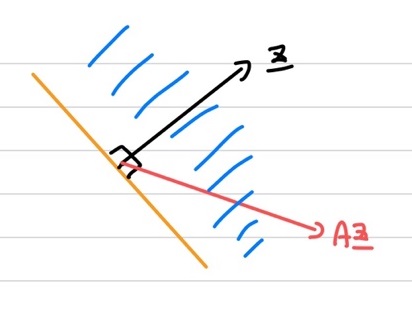 z
Az